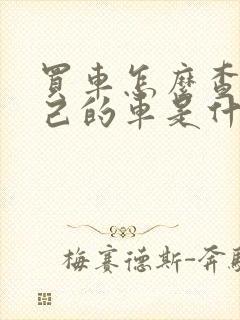 買車怎麼查
己的車是什
梅賽德斯-奔馳